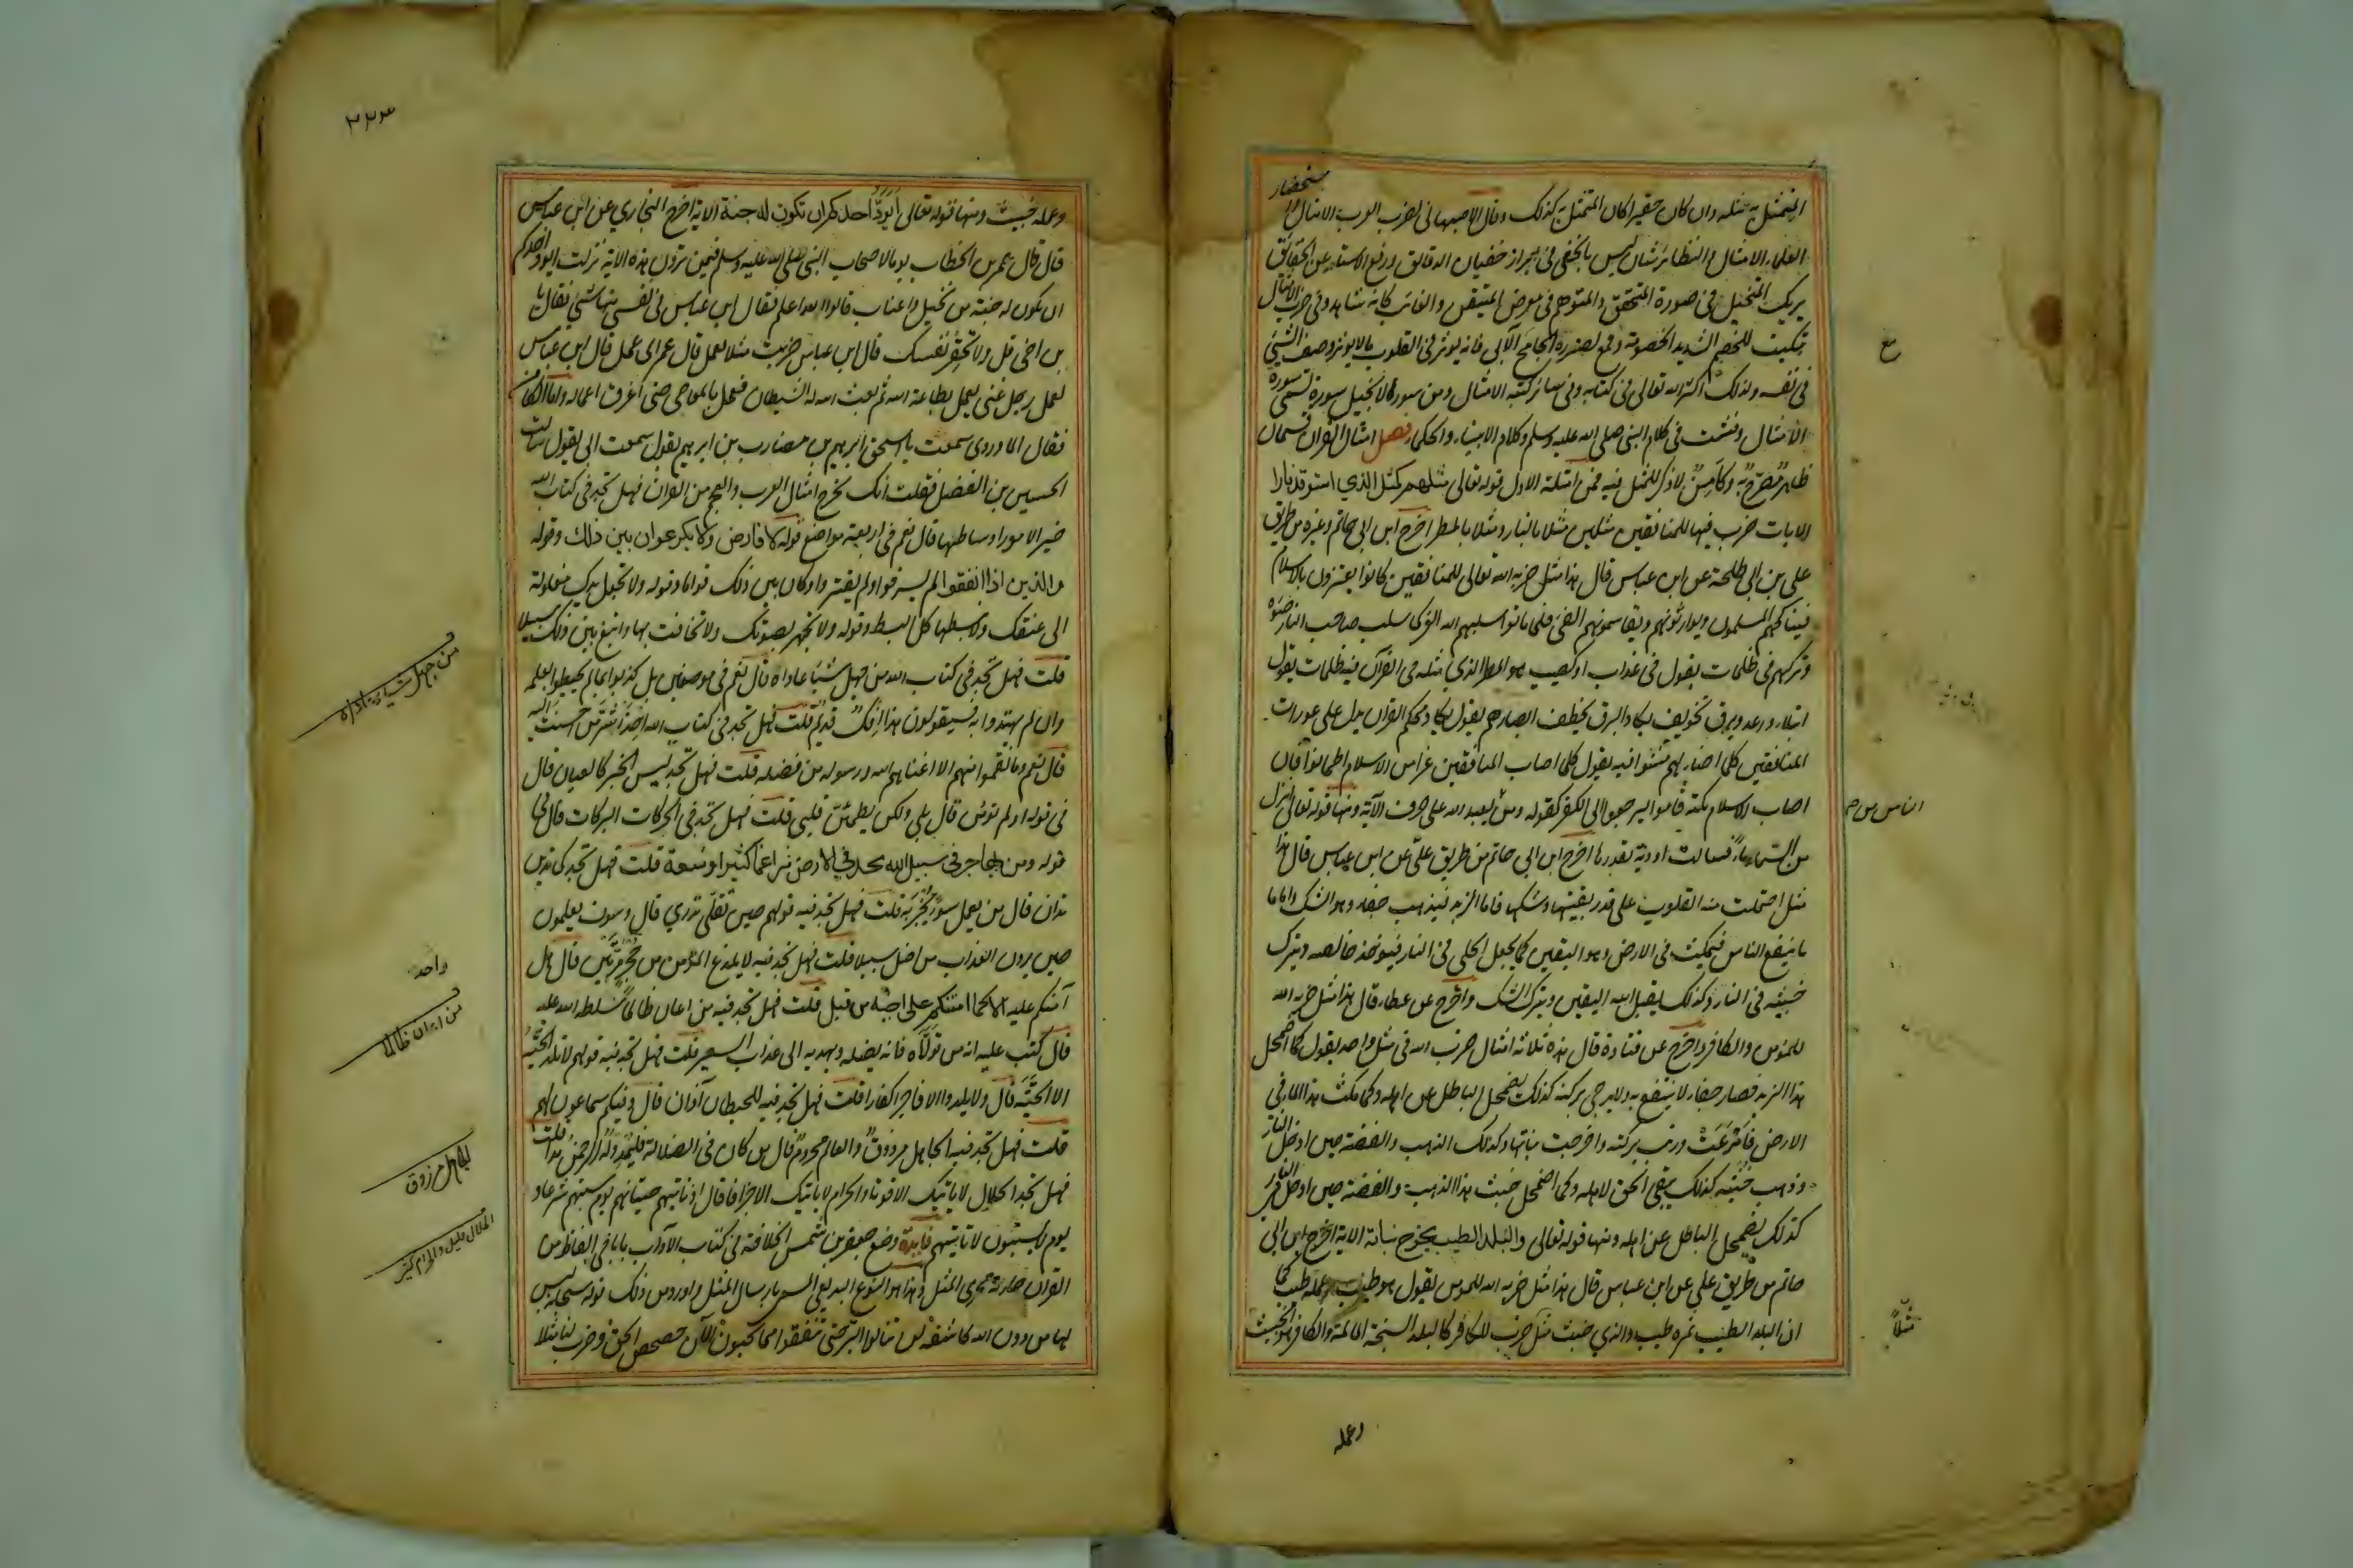 المتمثل به مثله وان كان حقيرا كان المتمثل به كذلك وقال الاصبهاني لضرب العرب الامثال و
ستحضار
العلماء الامثال والنظائر شان ليس بالخفي في ابراز خفيات الدقائق ورفع الاستار عن الحقائق
يريك المتخيل في صورة المتحقق والمتوهم في معرض المتيقن والغائب كانه مشاهد وفي ضرب الامثال
تبكيت للخصم الشديد الخصومة وقمع لضرره الجامح الآبي فانه يوثر في القلوب مالا يوثر وصف الشيئ
في نفسه ولذلك اكثر الله تعالى في كتابه وفي سائر كتبه الامثال ومن سور الانجيل سورة تسمى سورة
الامثال وفشت في كلام النبي صلى الله عليه وسلم وكلام الانبياء والحكماء فصل امثال القران قسمان
ظاهر مصرح به وكامن لا ذكر للمثل فيه فمن امثلة الاول قوله تعالى مثلهم كمثل الذي استوقد نارا
الايات ضرب فيها للمنافقين مثلين مثلا بالنار ومثلا بالمطر اخرج ابن ابي حاتم وغيره من طريق
علي بن ابي طلحة عن ابن عباس قال هذا مثل ضربه الله تعالى للمنافقين كانوا يعتزون بالاسلام
فيناكحهم المسلمون ويوارثونهم ويقاسمونهم الفئ فلما ماتوا سلبهم الله العز كما سلب صاحب النار ضوءه
وتركهم في ظلمات يقول في عذاب او كصيب هو المطر الذي مثله في القرآن فيه ظلمات يقول
ابتلاء ورعد وبرق تخويف يكاد البرق يخطف ابصارهم يقول يكاد محكم القران يدل على عورات
المنافقين كلما اضاء لهم مشوا فيه يقول كلما اصاب المنافقين في الاسلام اطمانوا فان
اصاب الاسلام نكبة قاموا ليرجعوا الى الكفر كقوله ومن يعبد الله على حرف الآية ومنها قوله تعالى انزل
من السماء ماء فسالت اودية بقدرها اخرج ابن ابي حاتم من طريق علي عن ابن عباس قال هذا
مثل احتملت منه القلوب على قدر يقينها وشكها فاما الزبد فيذهب جفاء وهو الشك واما ما
ما ينفع الناس فيمكث في الارض وهو اليقين كما يجعل الحلي في النار فيوخذ خالصه ويترك
خبثه في النار كذلك يقبل الله اليقين ويترك الشك واخرج عن عطاء قال هذا مثل ضربه الله
للمؤمن والكافر واخرج عن قتادة قال هذه ثلاثة امثال ضرب الله في مثل واحد يقول كما اضمحل
هذا الزبد فصار جفاء لا ينتفع به ولا يرجى بركته كذلك يضمحل الباطل عن اهله وكما مكث هذا الماء في
الارض فامرعت وربت بركته واخرجت نباتها وكذلك الذهب والفضة حين ادخل النار
وذهب خبثه كذلك يبقى الحق لاهله وكما اضمحل خبث هذا الذهب والفضة حين ادخل في النار
كذلك يضمحل الباطل عن اهله ومنها قوله تعالى والبلد الطيب يخرج نباته الاية اخرج ابن ابي
حاتم من طريق علي عن ابن عباس قال هذا مثل ضربه الله للمومن يقول هو طيب وعمله طيب كما
ان البلد الطيب ثمره طيب والذي خبث مثل ضرب للكافر كالبلد السبخة المالحة والكافر هو الخبيث
مثلاً
وعمله
٢٢٣
وعمله خبيث ومنها قوله تعالى ايود احدكم ان تكون له جنة الاية اخرج البخاري عن ابن عباس
قال قال عمر بن الخطاب يوما لاصحاب النبي صلى الله عليه وسلم فيمن ترون هذه الاية نزلت ايود احدكم
ان تكون له جنة من نخيل واعناب قالوا الله اعلم فقال ابن عباس في نفسي منها شئ فقال يا
بن اخي قل ولا تحقر نفسك قال ابن عباس ضربت مثلا لعمل قال عمر اي عمل قال ابن عباس
لعمل رجل غني يعمل بطاعة الله ثم بعث الله له الشيطان فعمل بالمعاصي حتى اغرق اعماله واما الكامن
فقال الماوردي سمعت با اسحق ابرهيم بن مضارب بن ابرهيم يقول سمعت ابي يقول سالت
الحسين بن الفضل فقلت انك تخرج امثال العرب والعجم من القران فهل تجد في كتاب الله
خير الامور اوساطها قال نعم في اربعة مواضع قوله لا فارض ولا بكر عوان بين ذلك وقوله
والذين اذا انفقوا لم يسرفوا ولم يقتروا وكان بين ذلك قواما وقوله ولا تجعل يدك مغلولة
الى عنقك ولا تبسطها كل البسط وقوله ولا تجهر بصوتك ولا تخافت بها وابتغ بين ذلك سبيلا
قلت فهل تجد في كتاب الله من جهل شيئا عاداه قال نعم في موضعين بل كذبوا بما لم يحيطوا بعلمه
واذ لم يهتدوا به فسيقولون هذا افك قديم قلت فهل تجد في كتاب الله احذر شر من احسنت اليه
قال نعم وما نقموا منهم الا ان اغناهم الله ورسوله من فضله قلت فهل تجد ليس الخبر كالعيان قال
في قوله اولم تؤمن قال بلى ولكن ليطمئن قلبي قلت فهل تجد في الحركات البركات قال في
قوله ومن يهاجر في سبيل الله يجد في الارض مراغما كثيرا وسعة قلت فهل تجد كما تدين
تدان قال من يعمل سوءا يجز به قلت فهل تجد فيه قولهم حين تقلي تدري قال وسوف يعلمون
حين يرون العذاب من اضل سبيلا قلت فهل تجد فيه لا يلدغ المؤمن من جحر مرتين قال هل
آمنكم عليه الا كما امنتكم على اخيه من قبل قلت فهل تجد فيه من اعان ظالما سلطه الله عليه
قال كتب عليه انه من تولاه فانه يضله ويهديه الى عذاب السعير قلت فهل تجد فيه قولهم لا تلد الحية
الا الحية قال ولا يلدوا الا فاجرا كفارا قلت فهل تجد فيه للحيطان آذان قال وفيكم سماعون لهم
قلت فهل تجد فيه الجاهل مرزوق والعالم محروم قال من كان في الضلالة فليمدد له الرحمن مدا قلت
فهل تجد الحلال لا ياتيك الا قوتا والحرام لا ياتيك الا جزافا قال اذ تاتيهم حيتانهم يوم سبتهم شرعا و
يوم لا يسبتون لا تاتيهم فايدة وضع جعفر بن شمس الخلافة في كتاب الآداب بابا في الفاظ من
القران جارية مجرى المثل وهذا هو النوع البديعي المسمى بارسال المثل واورد من ذلك قوله سبحانه ليس
لها من دون الله كاشفة لن تنالوا البر حتى تنفقوا مما تحبون الآن حصحص الحق وضرب لنا مثلا
من جهل شيئا عاداه
واحد
من اعان ظالما
الجاهل مرزوق